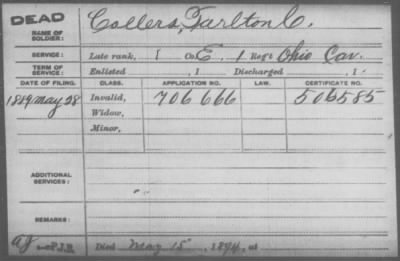 DEAD
NAME OF SOLDIER: Collers, Tarlton C.
SERVICE: Late rank, I Co. E, 1 Reg't Ohio Cav.
TERM OF SERVICE: Enlisted , 1 Discharged , 1
DATE OF FILING. CLASS. APPLICATION NO. LAW. CERTIFICATE NO.
1889 May 28 Invalid, 706 666 506585
Widow,
Minor,
ADDITIONAL SERVICES:
REMARKS:
Died May 15 , 1894, at